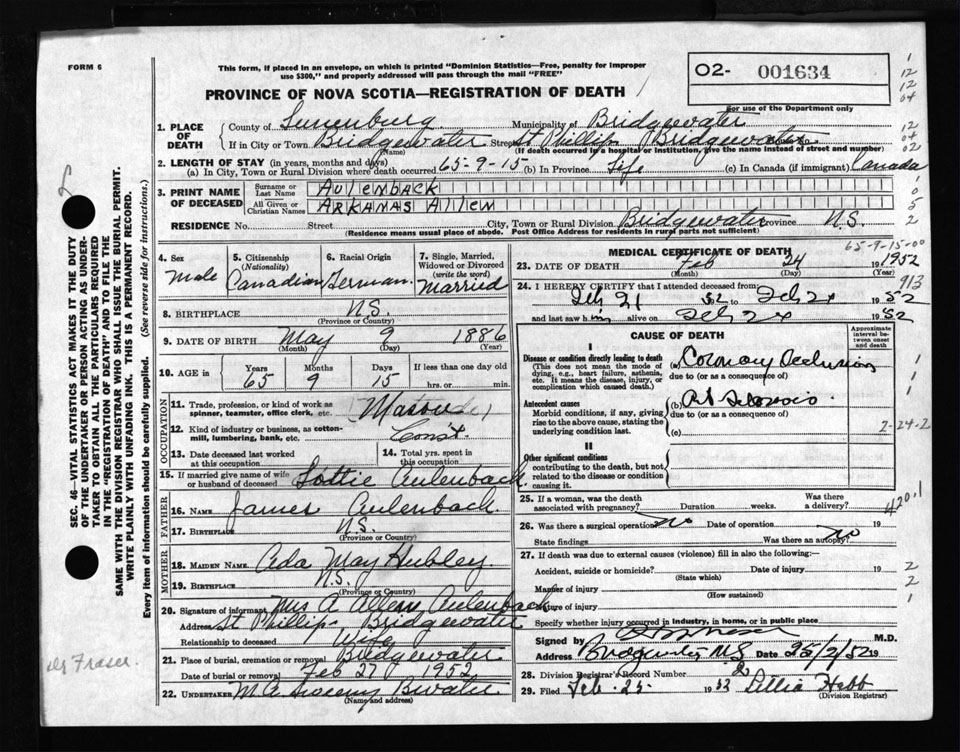 FORM 6
This form, if placed in an envelope, on which is printed "Dominion Statistics—Free, penalty for improper
use $300," and properly addressed will pass through the mail "FREE"
PROVINCE OF NOVA SCOTIA—REGISTRATION OF DEATH
02- 001634
For use of the Department only
1. PLACE OF DEATH
County of Lunenburg Municipality of Bridgewater
If in City or Town Bridgewater Street St Phillip Bridgewater
(Name) (If death occurred in a hospital or institution, give the name instead of street and number)
2. LENGTH OF STAY (in years, months and days)
(a) In City, Town or Rural Division where death occurred 65-9-15 (b) In Province Life (c) In Canada (if immigrant) Canada
3. PRINT NAME OF DECEASED
Surname or Last Name AULENBACK
All Given or Christian Names ARKANAS ALLEN
RESIDENCE No. Street City, Town or Rural Division Bridgewater Province N.S.
(Residence means usual place of abode. Post Office Address for residents in rural parts not sufficient)
4. Sex Male
5. Citizenship (Nationality) Canadian
6. Racial Origin German
7. Single, Married, Widowed or Divorced (write the word) Married
8. BIRTHPLACE N.S.
(Province or Country)
9. DATE OF BIRTH May 9 1886
(Month) (Day) (Year)
10. AGE in Years 65 Months 9 Days 15 If less than one day old
hrs. or min.
OCCUPATION
11. Trade, profession, or kind of work as spinner, teamster, office clerk, etc. Mason
12. Kind of industry or business, as cotton-mill, lumbering, bank, etc. Const.
13. Date deceased last worked at this occupation
14. Total yrs. spent in this occupation
15. If married give name of wife or husband of deceased Lottie Aulenback
FATHER
16. NAME James Aulenback
17. BIRTHPLACE N.S.
(Province or Country)
MOTHER
18. MAIDEN NAME Ada May Hubley
19. BIRTHPLACE N.S.
(Province or Country)
20. Signature of informant Mrs A Allen Aulenback
Address St Phillip Bridgewater
Relationship to deceased Wife
21. Place of burial, cremation or removal Bridgewater
Date of burial or removal Feb 27 1952
22. UNDERTAKER Sweeny Bwater
(Name and address)
MEDICAL CERTIFICATE OF DEATH
65-9-15-00
23. DATE OF DEATH Feb 24 1952
(Month) (Day) (Year)
24. I HEREBY CERTIFY that I attended deceased from:
Feb 21 52 to Feb 24 1952
and last saw him alive on Feb 24 1952
913
CAUSE OF DEATH
Approximate interval between onset and death
I
Disease or condition directly leading to death
(This does not mean the mode of dying, e.g., heart failure, asthenia, etc. It means the disease, injury, or complication which caused death.)
(a) Coronary Occlusion
due to (or as a consequence of)
Antecedent causes
Morbid conditions, if any, giving rise to the above cause, stating the underlying condition last.
(b)
due to (or as a consequence of)
(c)
2-24-2
II
Other significant conditions
contributing to the death, but not related to the disease or condition causing it.
25. If a woman, was the death associated with pregnancy? Duration weeks. Was there a delivery?
420.1
26. Was there a surgical operation? no Date of operation 19
State findings Was there an autopsy? no
27. If death was due to external causes (violence) fill in also the following:—
Accident, suicide or homicide? Date of injury 19
(State which)
Manner of injury
(How sustained)
Nature of injury
Specify whether injury occurred in industry, in home, or in public place
Signed by M.D.
Address Bridgewater N.S. Date 25/2/52 19
28. Division Registrar's Record Number 2
29. Filed Feb. 25 1952 Lillia Hebb
(Division Registrar)
SEC. 46—VITAL STATISTICS ACT MAKES IT THE DUTY
OF THE UNDERTAKER OR PERSON ACTING AS UNDER-
TAKER TO OBTAIN ALL THE PARTICULARS REQUIRED
IN THE "REGISTRATION OF DEATH" AND TO FILE THE
SAME WITH THE DIVISION REGISTRAR WHO SHALL ISSUE THE BURIAL PERMIT.
WRITE PLAINLY WITH UNFADING INK. THIS IS A PERMANENT RECORD.
Every item of information should be carefully supplied. (See reverse side for instructions.)
Fraser.